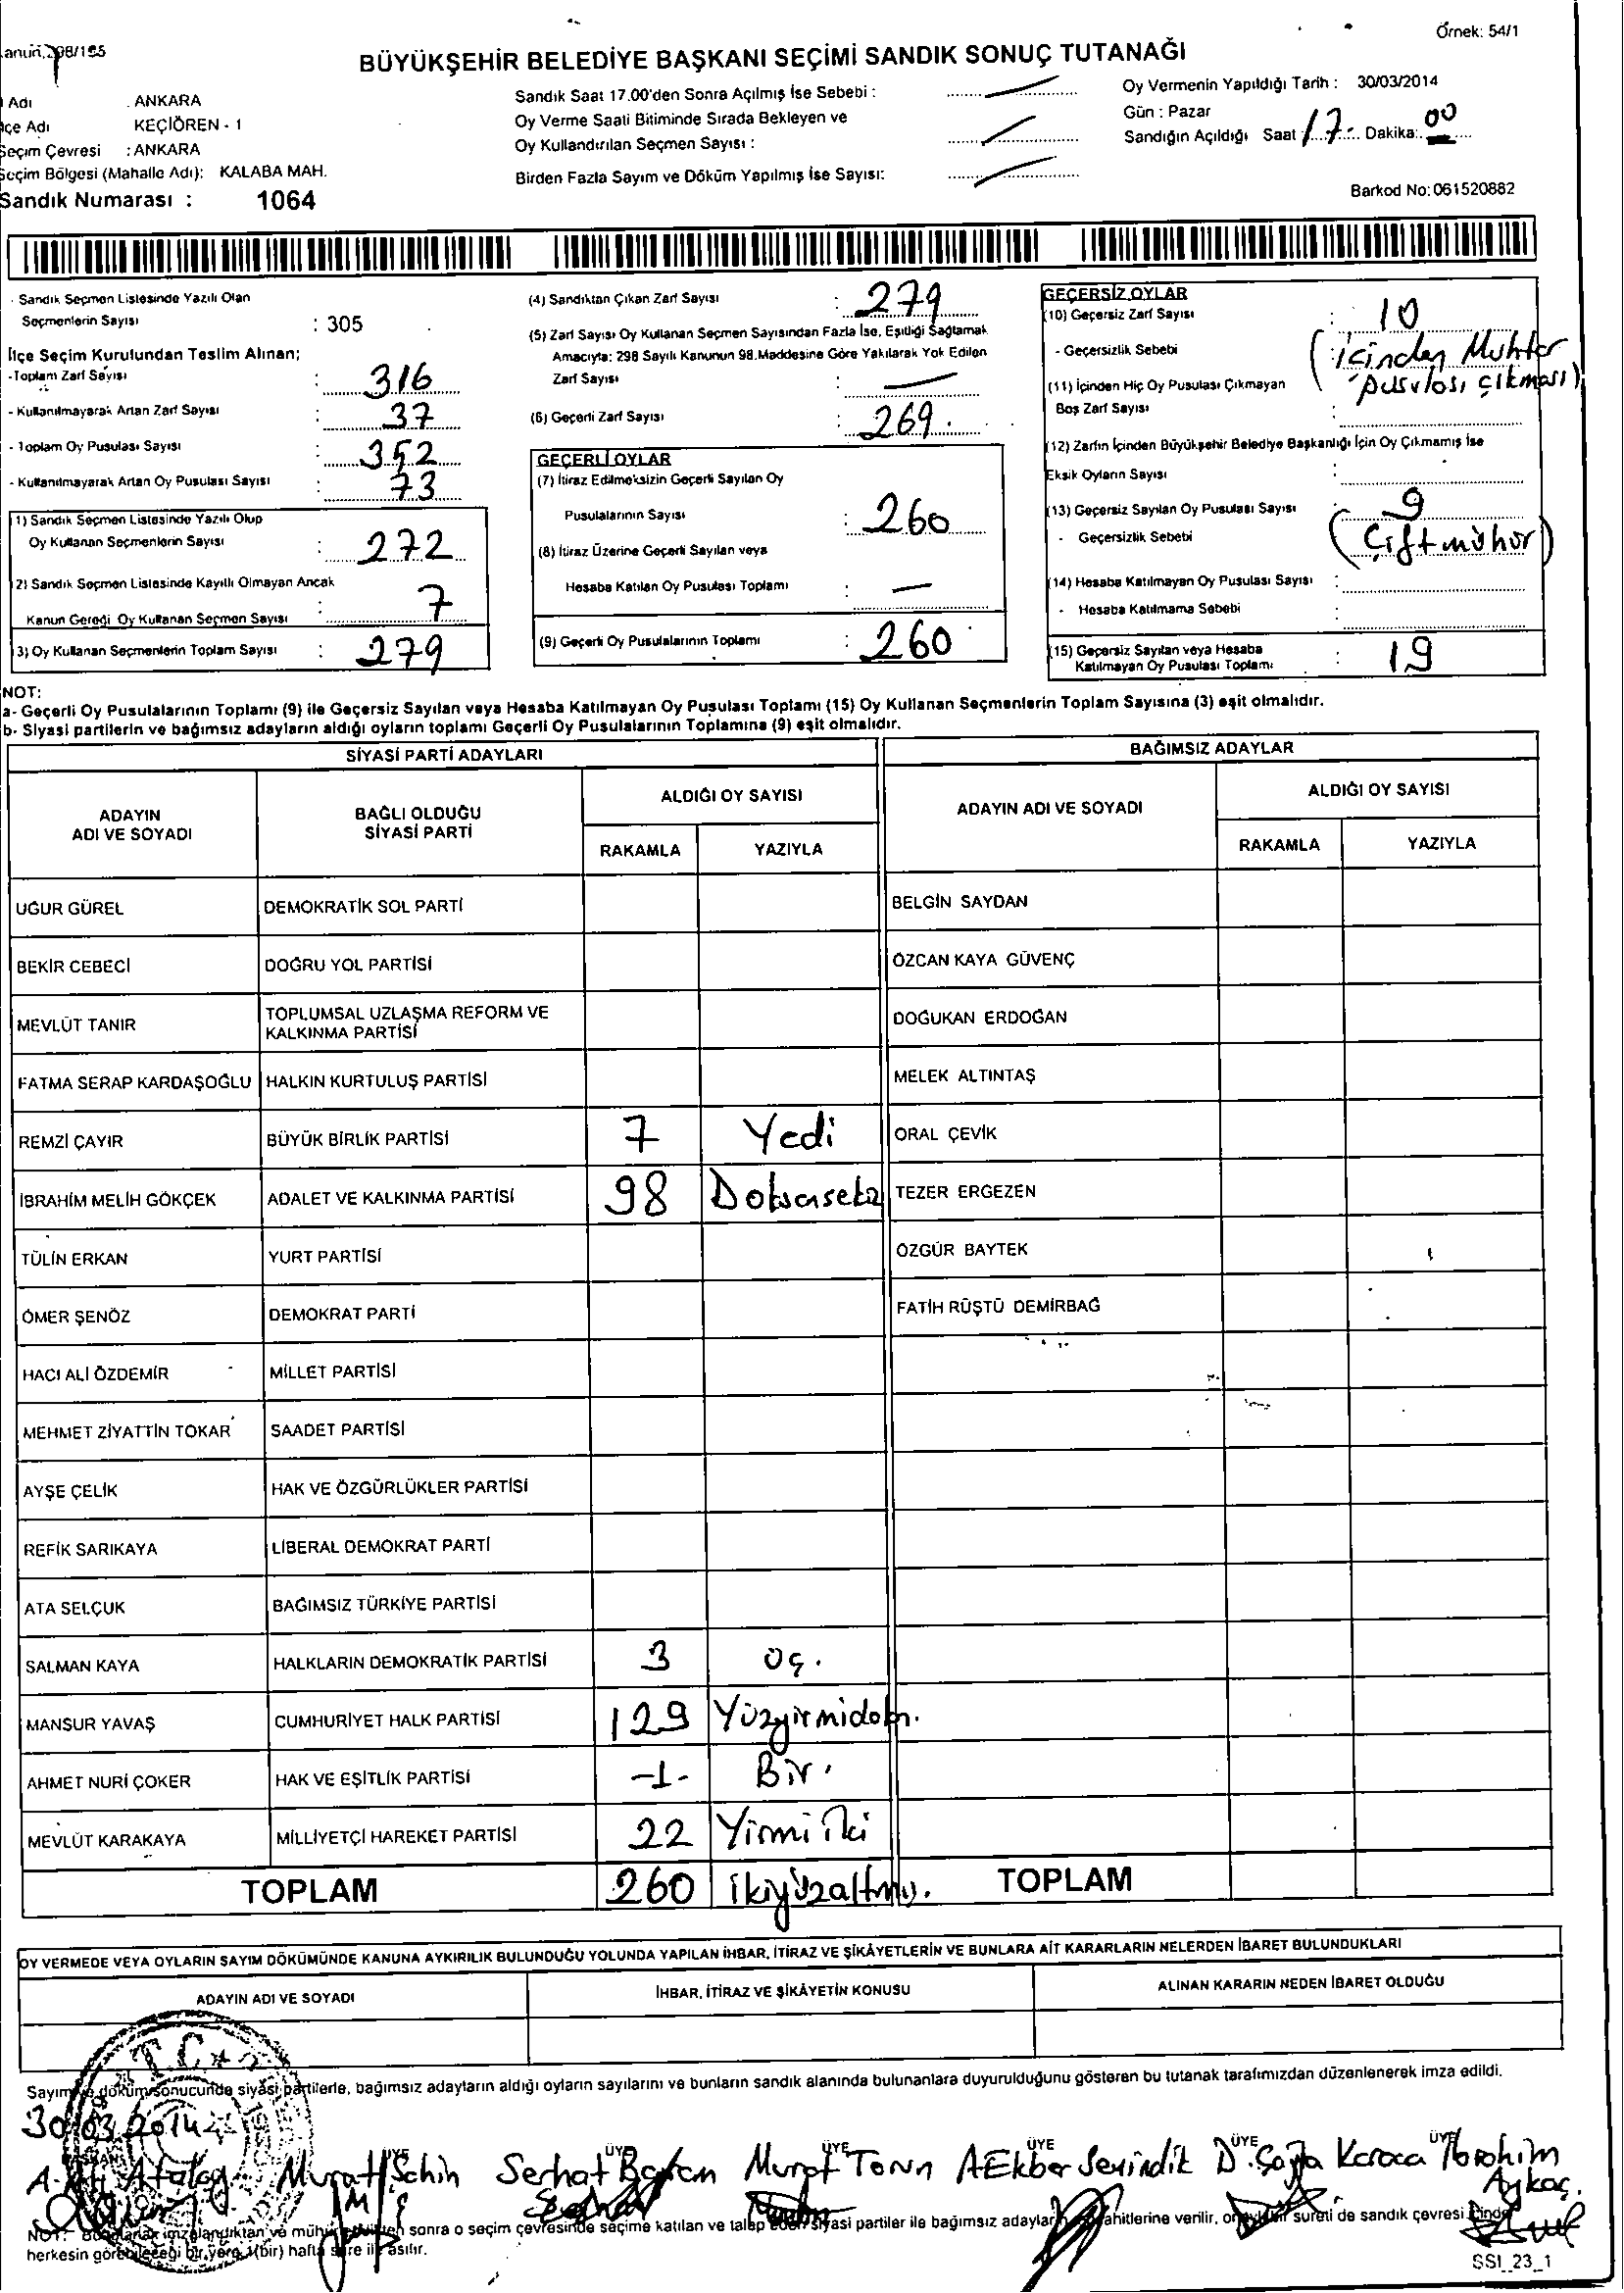 Örnek: 54/1
BÜYÜKŞEHİR BELEDİYE BAŞKANI SEÇİMİ SANDIK SONUÇ TUTANAĞI
Adı ANKARA
KEÇİÖREN - 1
Seçim Çevresi : ANKARA
Seçim Bölgesi (Mahalle Adı): KALABA MAH.
Sandık Numarası : 1064
Sandık Saat 17.00'den Sonra Açılmış İse Sebebi :
Oy Verme Saati Bitiminde Sırada Bekleyen ve
Oy Kullandırılan Seçmen Sayısı :
Birden Fazla Sayım ve Döküm Yapılmış İse Sayısı:
Oy Vermenin Yapıldığı Tarih : 30/03/2014
Gün : Pazar
Sandığın Açıldığı Saat 17 Dakika: 00
Barkod No: 061520882
- Sandık Seçmen Listesinde Yazılı Olan
Seçmenlerin Sayısı : 305
İlçe Seçim Kurulundan Teslim Alınan;
-Toplam Zarf Sayısı : 316
- Kullanılmayarak Artan Zarf Sayısı : 37
- Toplam Oy Pusulası Sayısı : 352
- Kullanılmayarak Artan Oy Pusulası Sayısı : 73
1) Sandık Seçmen Listesinde Yazılı Olup
Oy Kullanan Seçmenlerin Sayısı : 272
2) Sandık Seçmen Listesinde Kayıtlı Olmayan Ancak
Kanun Gereği Oy Kullanan Seçmen Sayısı : 7
3) Oy Kullanan Seçmenlerin Toplam Sayısı : 279
(4) Sandıktan Çıkan Zarf Sayısı : 279
(5) Zarf Sayısı Oy Kullanan Seçmen Sayısından Fazla İse, Eşitliği Sağlamak
Amacıyla: 298 Sayılı Kanunun 98.Maddesine Göre Yakılarak Yok Edilen
Zarf Sayısı : —
(6) Geçerli Zarf Sayısı : 269.
GEÇERLİ OYLAR
(7) İtiraz Edilmeksizin Geçerli Sayılan Oy
Pusulalarının Sayısı : 260
(8) İtiraz Üzerine Geçerli Sayılan veya
Hesaba Katılan Oy Pusulası Toplamı : —
(9) Geçerli Oy Pusulalarının Toplamı : 260
GEÇERSİZ OYLAR
(10) Geçersiz Zarf Sayısı : 10
- Geçersizlik Sebebi (içinden Muhtar
pusulası çıkması)
(11) İçinden Hiç Oy Pusulası Çıkmayan
Boş Zarf Sayısı :
(12) Zarfın İçinden Büyükşehir Belediye Başkanlığı İçin Oy Çıkmamış İse
Eksik Oyların Sayısı :
(13) Geçersiz Sayılan Oy Pusulası Sayısı : 9
- Geçersizlik Sebebi (Çift mühür)
(14) Hesaba Katılmayan Oy Pusulası Sayısı :
- Hesaba Katılmama Sebebi :
(15) Geçersiz Sayılan veya Hesaba
Katılmayan Oy Pusulası Toplamı : 19
NOT:
a- Geçerli Oy Pusulalarının Toplamı (9) ile Geçersiz Sayılan veya Hesaba Katılmayan Oy Pusulası Toplamı (15) Oy Kullanan Seçmenlerin Toplam Sayısına (3) eşit olmalıdır.
b- Siyasi partilerin ve bağımsız adayların aldığı oyların toplamı Geçerli Oy Pusulalarının Toplamına (9) eşit olmalıdır.
SİYASİ PARTİ ADAYLARI
ADAYIN ADI VE SOYADI
BAĞLI OLDUĞU SİYASİ PARTİ
ALDIĞI OY SAYISI
RAKAMLA YAZIYLA
UĞUR GÜREL DEMOKRATİK SOL PARTİ
BEKİR CEBECİ DOĞRU YOL PARTİSİ
MEVLÜT TANIR TOPLUMSAL UZLAŞMA REFORM VE
KALKINMA PARTİSİ
FATMA SERAP KARDAŞOĞLU HALKIN KURTULUŞ PARTİSİ
REMZİ ÇAYIR BÜYÜK BİRLİK PARTİSİ 7 Yedi
İBRAHİM MELİH GÖKÇEK ADALET VE KALKINMA PARTİSİ 98
TÜLİN ERKAN YURT PARTİSİ
ÖMER ŞENÖZ DEMOKRAT PARTİ
HACI ALİ ÖZDEMİR MİLLET PARTİSİ
MEHMET ZİYATTİN TOKAR SAADET PARTİSİ
AYŞE ÇELİK HAK VE ÖZGÜRLÜKLER PARTİSİ
REFİK SARIKAYA LİBERAL DEMOKRAT PARTİ
ATA SELÇUK BAĞIMSIZ TÜRKİYE PARTİSİ
SALMAN KAYA HALKLARIN DEMOKRATİK PARTİSİ 3 üç.
MANSUR YAVAŞ CUMHURİYET HALK PARTİSİ 129
AHMET NURİ ÇOKER HAK VE EŞİTLİK PARTİSİ -1- Bir.
MEVLÜT KARAKAYA MİLLİYETÇİ HAREKET PARTİSİ 22 Yirmi iki
TOPLAM 260 ikiyüzaltmış.
BAĞIMSIZ ADAYLAR
ADAYIN ADI VE SOYADI
ALDIĞI OY SAYISI
RAKAMLA YAZIYLA
BELGİN SAYDAN
ÖZCAN KAYA GÜVENÇ
DOĞUKAN ERDOĞAN
MELEK ALTINTAŞ
ORAL ÇEVİK
TEZER ERGEZEN
ÖZGÜR BAYTEK
FATİH RÜŞTÜ DEMİRBAĞ
TOPLAM
OY VERMEDE VEYA OYLARIN SAYIM DÖKÜMÜNDE KANUNA AYKIRILIK BULUNDUĞU YOLUNDA YAPILAN İHBAR, İTİRAZ VE ŞİKÂYETLERİN VE BUNLARA AİT KARARLARIN NELERDEN İBARET BULUNDUKLARI
ADAYIN ADI VE SOYADI İHBAR, İTİRAZ VE ŞİKÂYETİN KONUSU ALINAN KARARIN NEDEN İBARET OLDUĞU
T.C.
Sayım ve döküm sonucunda siyasi partilerle, bağımsız adayların aldığı oyların sayılarını ve bunların sandık alanında bulunanlara duyurulduğunu gösteren bu tutanak tarafımızdan düzenlenerek imza edildi.
30.03.2014
ÜYE ÜYE ÜYE ÜYE ÜYE ÜYE
Murat Şahin Serhat Murat Torun A Ekber Sevindik Karaca İbrahim
Aykaç.
sonra o seçim çevresinde seçime katılan ve talep eden siyasi partiler ile bağımsız adayların verilir, sureti de sandık çevresi
herkesin görebileceği bir yere 1(bir) hafta süre ile asılır.
SSI_23_1